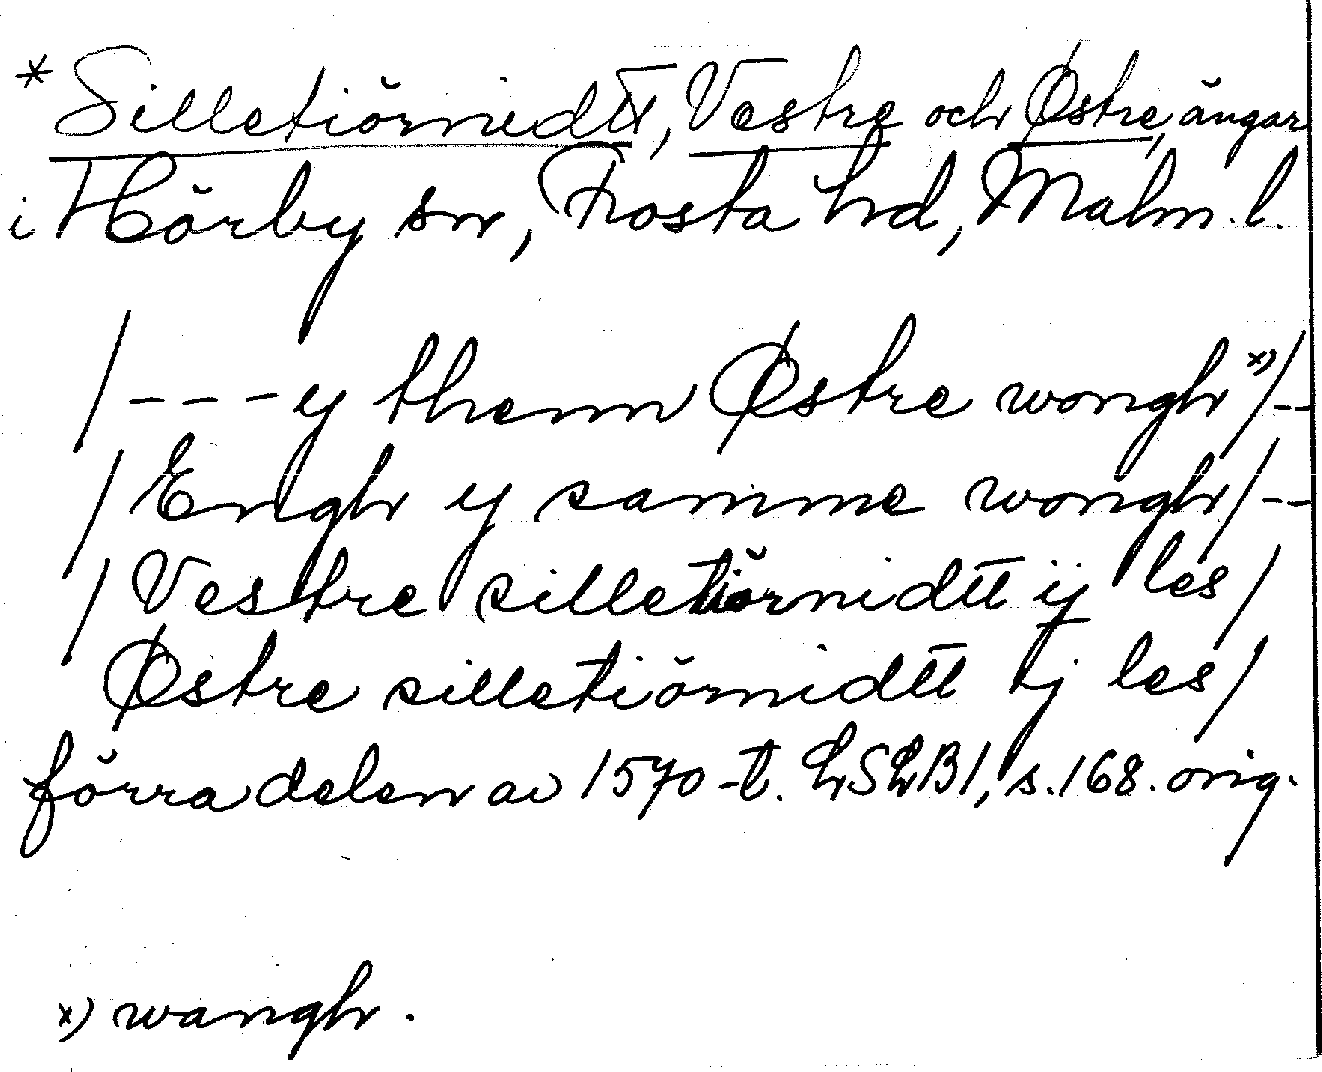 * Silletiörnidtt, Vestre och Østre, ängar
i Hörby sn, Frosta hd, Malm. l.
/ - - - y thenn Østre wongh x) / - -
/ Engh y samme wongh / - -
/ Vestre silletiörnidtt ij les /
Østre silletiörnidtt ij les /
förra delen av 1570-t. LSLB1, s. 168. orig.
x) wangh.